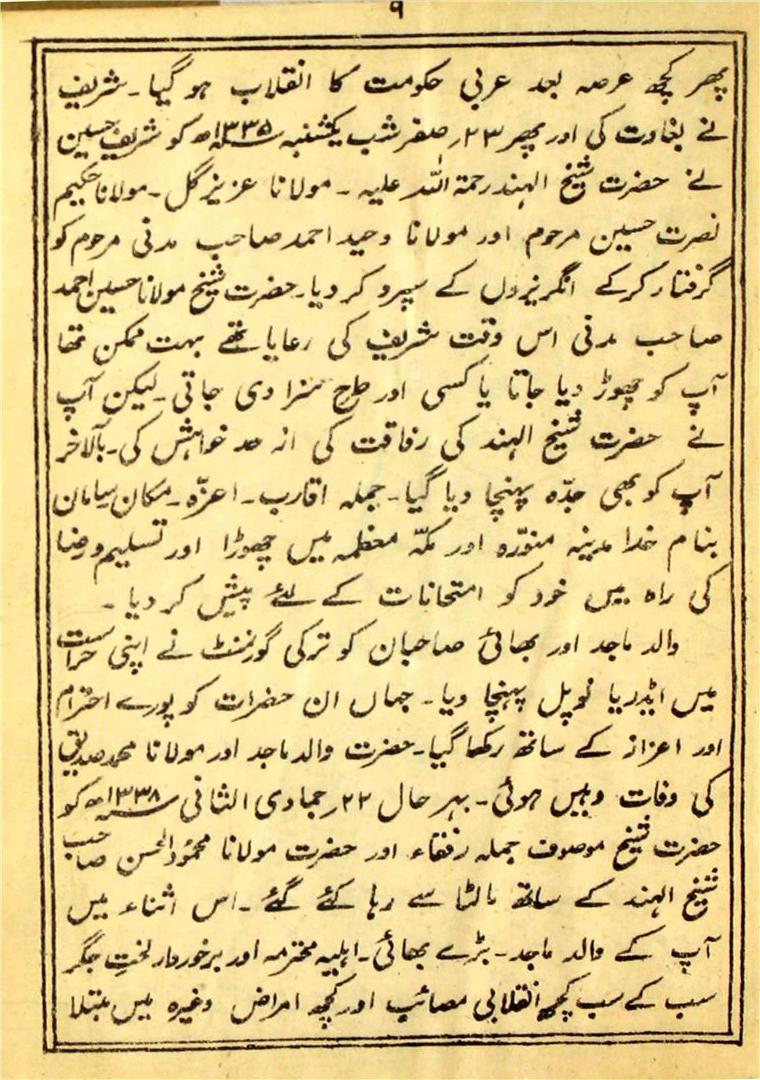 ۹
پھر کچھ عرصہ بعد عربی حکومت کا انقلاب ہو گیا۔ شریف
نے بغاوت کی اور پھر ۲۳ر صفر شب یکشنبہ ۱۳۳۵ھ کو شریف حسین
نے حضرت شیخ الہند رحمۃ اللہ علیہ۔ مولانا عزیز گل۔ مولانا حکیم
نصرت حسین مرحوم اور مولانا وحید احمد صاحب مدنی مرحوم کو
گرفتار کرکے انگریزوں کے سپرد کر دیا۔ حضرت شیخ مولانا حسین احمد
صاحب مدنی اس وقت شریف کی رعایا تھے بہت ممکن تھا
آپ کو چھوڑ دیا جاتا یا کسی اور طرح سزا دی جاتی۔ لیکن آپ
نے حضرت شیخ الہند کی رفاقت کی از حد خواہش کی۔ بالآخر
آپ کو بھی جدّہ پہنچا دیا گیا۔ جملہ اقارب۔ اعزّہ۔ مکان سامان
بنام خدا مدینہ منوّرہ اور مکّہ معظمہ میں چھوڑا اور تسلیم و رضا
کی راہ میں خود کو امتحانات کے لئے پیش کر دیا۔
والد ماجد اور بھائی صاحبان کو ترکی گورنمنٹ نے اپنی حراست
میں ایڈریا نوپل پہنچا دیا۔ جہاں ان حضرات کو پورے احترام
اور اعزاز کے ساتھ رکھا گیا۔ حضرت والد ماجد اور مولانا محمد صدیق
کی وفات وہیں ہوئی۔ بہر حال ۲۲ر جمادی الثانی ۱۳۳۸ھ کو
حضرت شیخ موصوف جملہ رفقاء اور حضرت مولانا محمود الحسن صاحب
شیخ الہند کے ساتھ مالٹا سے رہا کئے گئے۔ اس اثناء میں
آپ کے والد ماجد۔ بڑے بھائی۔ اہلیہ محترمہ اور برخوردار لخت جگر
سب کے سب کچھ انقلابی مصائب اور کچھ امراض وغیرہ میں مبتلا